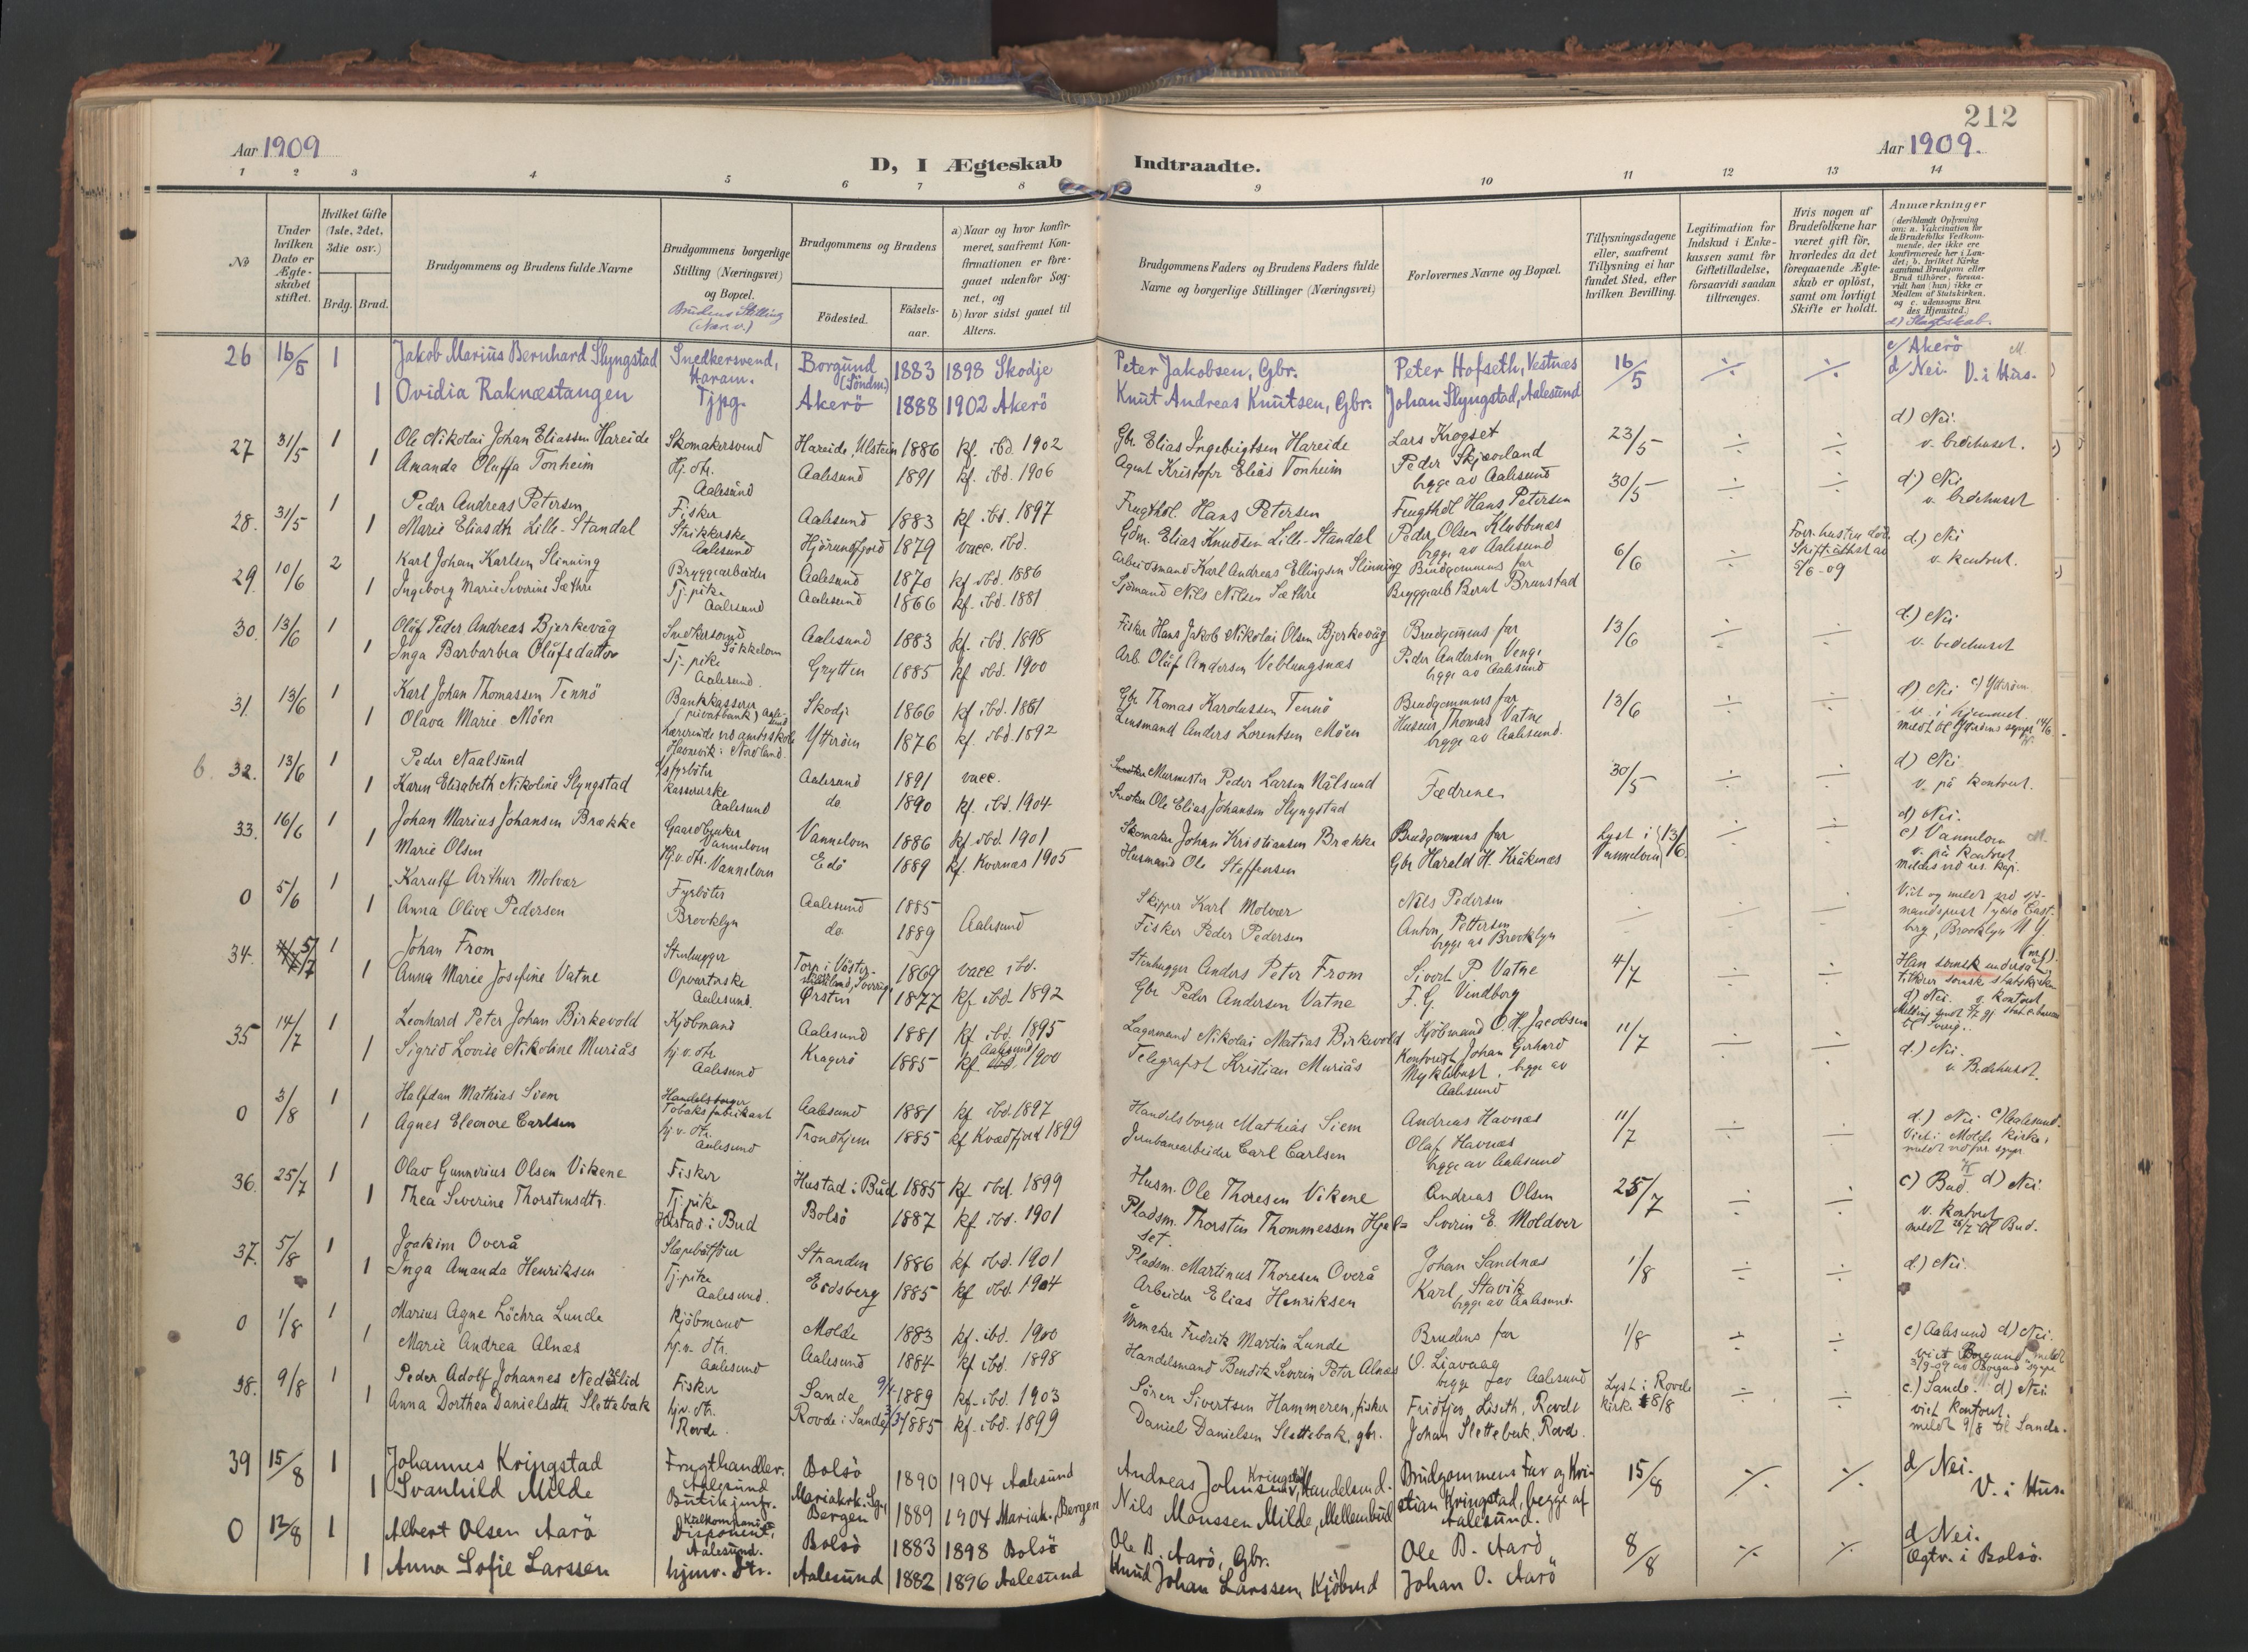 212
Aar 1909
Aar 1909.
D, I Ægteskab Indtraadte.
1 2 3 4 5 6 7 8 9 10 11 12 13 14
No
Under hvilken Dato er Ægteskabet stiftet.
Hvilket Gifte (1ste, 2det, 3die osv.)
Brdg. Brud.
Brudgommens og Brudens fulde Navne
Brudgommens borgerlige Stilling (Næringsvei) og Bopæl.
Brudens Stilling (Nær.v.)
Brudgommens og Brudens
Födested.
Födselsaar.
a) Naar og hvor konfirmeret, saafremt Konfirmationen er foregaaet udenfor Sognet, og
b) hvor sidst gaaet til Alters.
Brudgommens Faders og Brudens Faders fulde Navne og borgerlige Stillinger (Næringsvei)
Forlovernes Navne og Bopæl.
Tillysningsdagene eller, saafremt Tillysning ei har fundet Sted, efter hvilken Bevilling.
Legitimation for Indskud i Enkekassen samt for Giftetilladelse, forsaavidt saadan tiltrænges.
Hvis nogen af Brudefolkene har været gift för, hvorledes da det foregaaende Ægteskab er oplöst, samt om lovligt Skifte er holdt.
Anmærkninger (deriblandt Oplysning om: a. Vakcination for de Brudefolks Vedkommende, der ikke ere konfirmerede her i Landet; b. hvilket Kirkesamfund Brudgom eller Brud tilhörer, forsaavidt han (hun) ikke er Medlem af Statskirken, og c. udensogns Brudes Hjemsted.)
d) Slægtskab.
26 16/5 1 Jakob Marius Bernhard Slyngstad Snedkersvend, Haram. Borgund (Söndm.) 1883 1898 Skodje Peter Jakobsen, Gbr. Peter Hofseth, Vestnæs 16/5 ÷ ÷ c/ Akerö
1 Ovidia Raknæstangen Tjpg. Akerö 1888 1902 Akerö Knut Andreas Knutsen, Gbr. Johan Slyngstad, Aalesund d/ Nei. V. i Hus.
27 31/5 1 Ole Nikolai Johan Eliassen Hareide Skomakersvend Hareide, Ulstein 1886 kf. ibd. 1902 Gbr. Elias Ingebrigtsen Hareide Lars Krogset 23/5 ÷ ÷ d) Nei.
1 Amanda Oluffa Tonheim Hj. dtr. Aalesund Aalesund 1891 kf. ibd. 1906 Agent Kristofer Elias Tonheim Peder Skjaveland begge av Aalesund v. bedehuset.
28. 31/5 1 Peder Andreas Petersen Fisker Aalesund 1883 kf. ibd. 1897 Frugthdl. Hans Petersen Frugthdl Hans Petersen 30/5 ÷ ÷ d) Nei
1 Marie Eliasdtr Lille-Standal Strikkerske Aalesund Hjörundfjord 1879 vacc. ibd. Gdm. Elias Knudsen Lille-Standal Peder Olsen Klubbenæs begge av Aalesund v. bedehuset
29. 10/6 2 Karl Johan Karlsen Slinning Bryggearbeider Aalesund 1870 kf. ibd. 1886 Arbeidsmand Karl Andreas Ellingsen Slinning Brudgommens far 6/6 ÷ Forr. hustru död. Skifteattest av 5/6-09 d) Nei
1 Ingeborg Marie Severine Sæthre Tj. pike Aalesund Aalesund 1866 kf. ibd. 1881 Sjömand Nils Nilsen Sæthre Bryggearb Bernt Brunstad v. kontoret.
30. 13/6 1 Oluf Peder Andreas Bjerkevåg Snedkersvend Sökkelven Aalesund 1883 kf. ibd. 1898 Fisker Hans Jakob Nikolai Olsen Bjerkevåg Brudgommens far 13/6 ÷ ÷ d.) Nei
1 Inga Barbarbra Olufsdatter Tj. pike Aalesund. Grytten 1885 kf ibd. 1900 Arb. Oluf Andersen Veblungsnæs Peder Andersen Venge begge av Aalesund v. bedehuset
31. 13/6 1 Karl Johan Thomassen Tennö Bankkasserer (privatbank) Aalesund Skodje 1866 kf. ibd. 1881 Gbr. Thomas Karolussen Tennö Brudgommens far 13/6 ÷ ÷ d) Nei c) Ytteröen
1 Olava Marie Möen Lærerinde ved amtsskole Havnevik i Nordland. Ytteröen 1876 kf. ibd. 1892 Lensmand Anders Lorentsen Möen Husmor Thomas Vatne begge av Aalesund. v. i hjemmet.
b. 32. 13/6 1 Peder Naalsund Fyrböter Aalesund 1891 vacc. Murmester Peder Larsen Nålsund Fædrene. 30/5 ÷ ÷ d) Nei
1 Karen Elisabeth Nikoline Slyngstad Kassererske Aalesund do. 1890 kf. ibd. 1904 Snedker Ole Elias Johansen Slyngstad v. på kontoret.
33. 16/6 1 Johan Marius Johansen Brække Gaardbruker Vannelven Vannelven 1886 kf. ibd. 1901 Skomaker Johan Kristiansen Brække Brudgommens far Lyst i Vannelven 13/6. ÷ ÷ d) Nei. c) Vannelven
1 Marie Olsen Hj.v. dtr. Vannelven Edö 1889 kf. Kvernæs 1905 Husmand Ole Steffensen Gbr Harald H. Kråknes v. på kontoret meldes ved res. kap.
0 5/6 1 Karulf Arthur Molvær Fyrböter Aalesund 1885 Skipper Karl Molvær Nils Pedersen ÷ ÷ Viet og meldt ved sjömandsprest Tycho Castberg, Brooklyn N Y.
1 Anna Olive Pedersen Brooklyn do. 1889 Aalesund Fisker Peder Pedersen Anton Pettersen begge av Brooklyn
34. 5/7 1 Johan From Stenhugger Torp i Väster Sverrig 1869 vacc. ibd. Stenhugger Anders Peter From Sivert P. Vatne 4/7 ÷ ÷ Han svensk undersåt, tilhörer svenske statskirken
1 Anna Marie Josefine Vatne Opvarterske Aalesund. Örsten 1877 kf. ibd. 1892 Gbr Peder Andersen Vatne F. G. Vindberg d) Nei. v. kontoret
35 14/7 1 Leonhard Peter Johan Birkevold Kjöbmand Aalesund 1881 kf. ibd. 1895 Lagermand Nikolai Matias Birkevold Kjöbmand O. H. Jacobsen 11/7 ÷ ÷ d.) Nei.
1 Sigrid Lovise Nikoline Muriås hj.v. dtr. Aalesund Kragerö 1885 kf. Aalesund 1900 Telegrafist Kristian Muriås Kontorist Johan Gerhard Myklebust, begge av Aalesund v. Bedehuset.
0 3/8 1 Halfdan Mathias Siem Tobaksfabrikant Aalesund 1881 kf ibd. 1897 Handelsborger Mathias Siem Andreas Havnæs 11/7 ÷ ÷ d.) Nei c) Aalesund.
1 Agnes Eleonore Carlsen hj. v. dtr. Aalesund Trondhjem 1885 kf Kvædfjord 1899 Jernbanearbeider Carl Carlsen Olaf Havnæs begge av Aalesund Viet i Molde kirke,
36. 25/7 1 Olav Gunnerius Olsen Vikene Fisker Hustad i Bud 1885 kf. ibd. 1899 Husm. Ole Thoresen Vikene Andreas Olsen 25/7 ÷ ÷ c) Bud. d) Nei.
1 Thea Severine Thorstensdtr. Tj. pike Hustad i Bud Bolsö 1887 kf. ibd. 1901 Pladsm. Thorsten Thommessen Hjelset. Severin E. Moldver v. kontoret meldt 26/7 til Bud.
37. 5/8 1 Joakim Overå Slæpebåtförer Stranden 1886 kf ibd. 1901 Pladsm. Martinus Thoresen Overå Johan Sandnæs 1/8 ÷ ÷ d.) Nei.
1 Inga Amanda Henriksen Tj. pike Aalesund. Eidsberg 1885 kf ibd. 1904 Arbeider Elias Henriksen Karl Stavik begge av Aalesund.
0 1/8 1 Marius Agne Löchra Lunde Kjöbmand Molde 1883 kf. ibd. 1900 Urmaker Fredrik Martin Lunde Brudens far 1/8 ÷ ÷ c) Aalesund d) Nei.
1 Marie Andrea Alnæs hj.v. dtr. Aalesund Aalesund 1884 kf ibd. 1898 Handelsmand Bendik Severin Peter Alnæs O. Liavaag begge av Aalesund viet Borgund
38. 9/8 1 Peder Adolf Johannes Nedrelid Fisker Sande 9/4-1889 kf. ibd. 1903 Sören Sivertsen Hammeren, fisker Fridtjov Liseth, Rovde Lyst i Rovde kirke 8/8 ÷ ÷ c.) Sande. d) Nei
1 Anna Dorthea Danielsdtr. Slettebak hj.v. dtr. Rovde. Rovde i Sande 3/3 1885 kf. ibd. 1899 Daniel Danielsen Slettebak, gbr. Johan Slettebak, Rovde. viet kontoret, meldt 9/8 til Sande.
39 15/8 1 Johannes Kringstad Frugthandler. Aalesund Bolsö 1890 1904 Aalesund Andreas Johnsen Kringstad, Handelsmd. Brudgommens Far og Kristian Kringstad, begge af Aalesund. 15/8 ÷ ÷ d/ Nei.
1 Svanhild Milde Butikjomfr. Mariakrk. Sg., Bergen 1889 1904 Mariak., Bergen Nils Monssen Milde, Mellembud V. i Hus.
0 12/8 1 Albert Olsen Aarö Disponent, Aalesund. Bolsö 1883 1898 Bolsö Ole B. Aarö, Gbr. Ole B. Aarö 8/8 ÷ ÷ d/ Nei.
1 Anna Sofie Larssen hjmv. Dtr. Aalesund 1882 1896 Aalesund Knud Johan Larssen, Kjöbmd Johan O. Aarö Ægtv. i Bolsö.